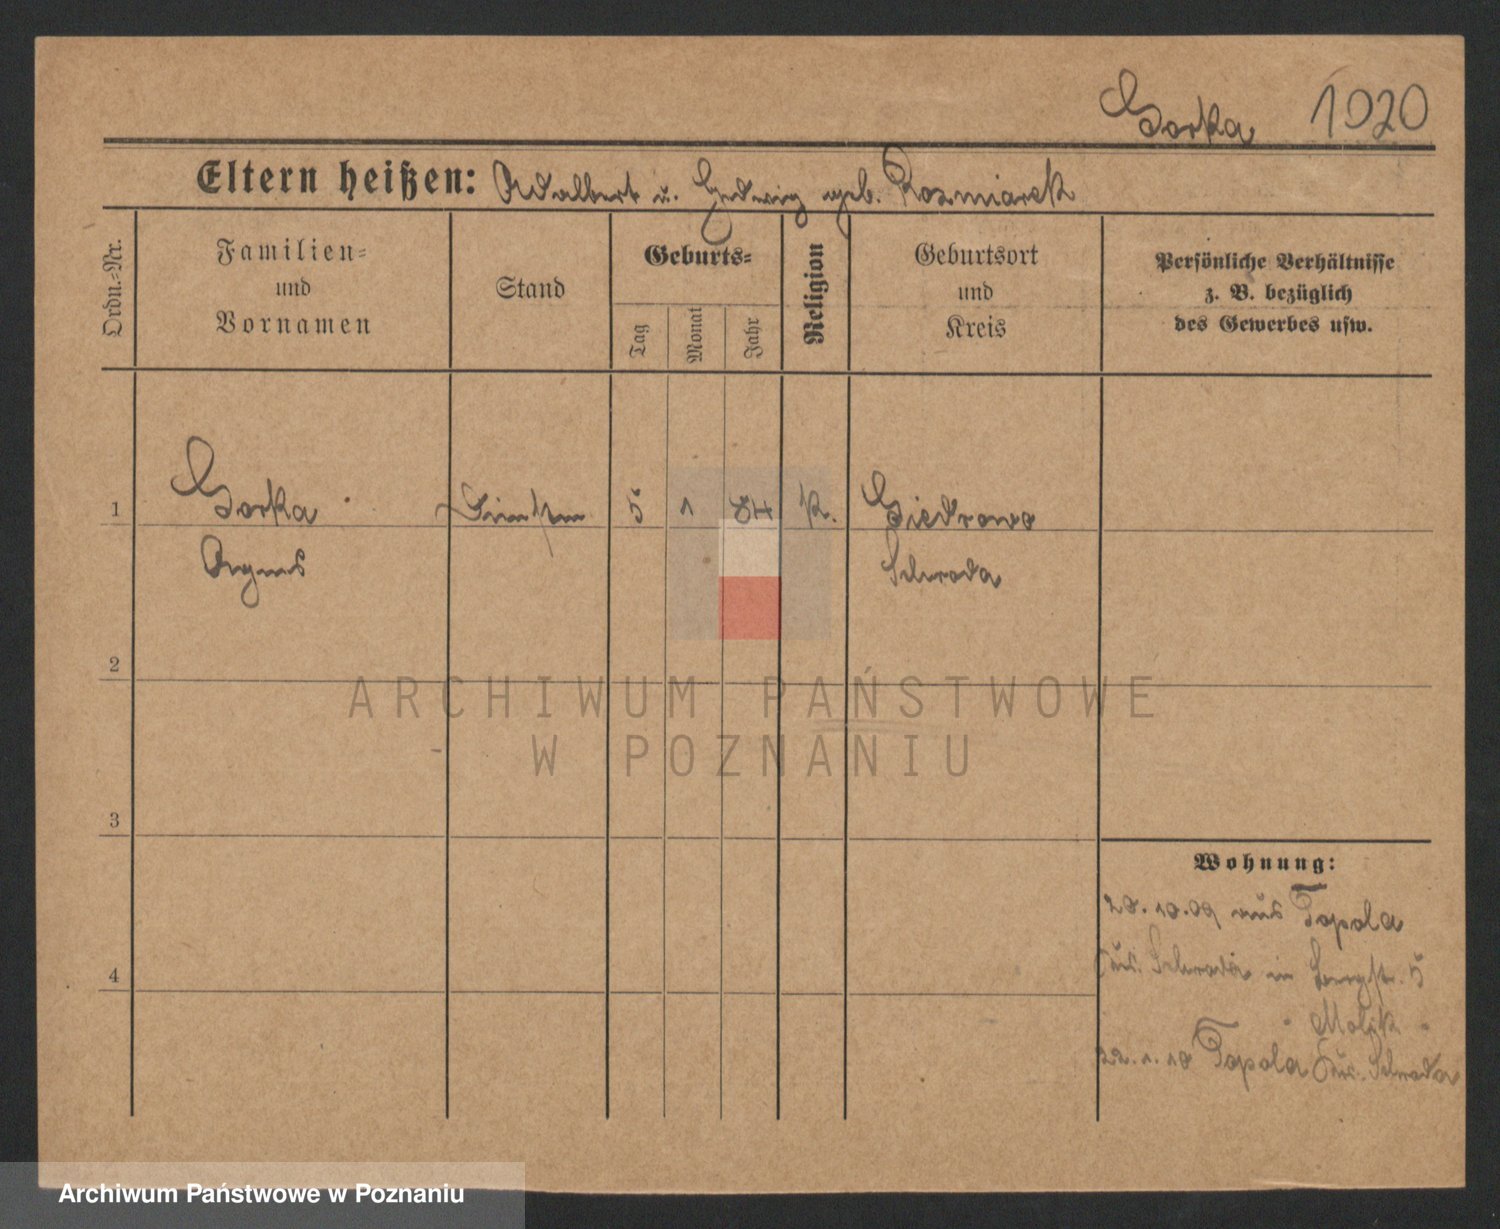 Gorka 1920
Eltern heißen: Adalbert u. Hedwig geb. Rozmiarek
Ordn.-Nr.
Familien-
und
Vornamen
Stand
Geburts-
Tag
Monat
Jahr
Religion
Geburtsort
und
Kreis
Persönliche Verhältnisse
z. B. bezüglich
des Gewerbes usw.
1 Gorka 5 1 84 k. Giedrowo
Agnes Schroda
2
3
4
Wohnung:
28.10.09 aus Topola
Schroda in Bergstr. 5
22.1.10 Topola Schroda
ARCHIWUM PAŃSTWOWE
W POZNANIU
Archiwum Państwowe w Poznaniu